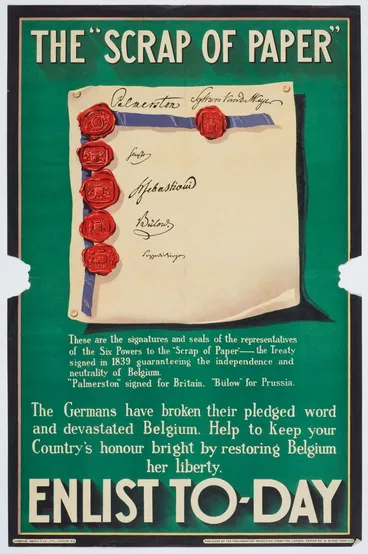 THE "SCRAP OF PAPER"
Palmerston Sylvain Van de Weyer
Senfft
H Sebastiani
Bülow
Pozzo di Borgo
These are the signatures and seals of the representatives
of the Six Powers to the "Scrap of Paper"—the Treaty
signed in 1839 guaranteeing the independence and
neutrality of Belgium.
"Palmerston" signed for Britain, "Bülow" for Prussia.
The Germans have broken their pledged word
and devastated Belgium. Help to keep your
Country's honour bright by restoring Belgium
her liberty.
ENLIST TO-DAY